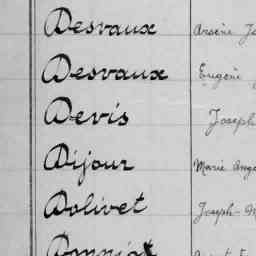 Desvaux Arsène
Desvaux Eugène
Devis Joseph
Dijour Marie Ange
Dolivet Joseph-M